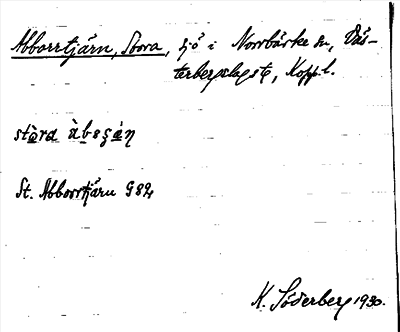 Abborrtjärn, Stora, sjö i Norrbärke sn, Väs-
terbergslags tg, Kopp.l.
stòra àbesạ́n
St. Abborrtjärn G 82
K. Söderberg 1930.